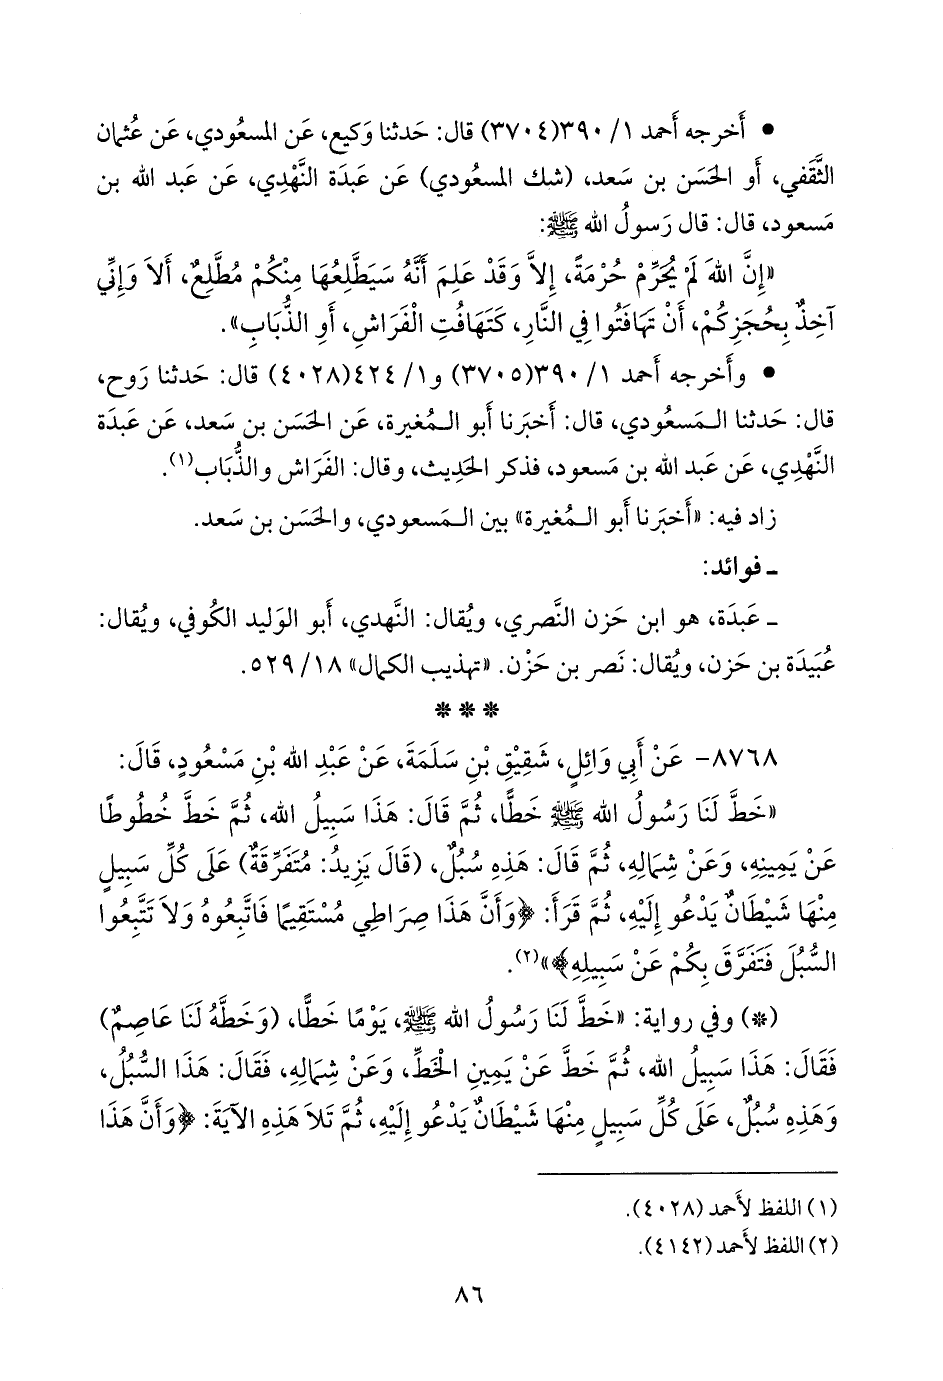 • أَخرجه أَحمد ١/ ٣٩٠(٣٧٠٤) قال: حَدثنا وَكيع، عَن المسعُودي، عَن عُثمان
الثَّقفي، أَو الحَسَن بن سَعد، (شك المسعُودي) عَن عَبدَة النَّهْدِي، عَن عَبد الله بن
مَسعود، قال: قال رَسولُ الله ﷺ:
«إِنَّ اللهَ لَمْ يُحَرِّمْ حُرْمَةً، إِلاَّ وَقَدْ عَلِمَ أَنَّهُ سَيَطَّلِعُهَا مِنْكُمْ مُطَّلِعٌ، أَلاَ وَإِنِّي
آخِذٌ بِحُجَزِكُمْ، أَنْ تَهَافَتُوا فِي النَّارِ، كَتَهَافُتِ الْفَرَاشِ، أَوِ الذُّبَابِ».
• وأَخرجه أَحمد ١/ ٣٩٠(٣٧٠٥) و١/ ٤٢٤(٤٠٢٨) قال: حَدثنا رَوح،
قال: حَدثنا الـمَسعُودي، قال: أَخبَرنا أَبو الـمُغيرة، عَن الحَسَن بن سَعد، عَن عَبدَة
النَّهْدِي، عَن عَبد الله بن مَسعود، فذكر الحَدِيث، وقال: الفَرَاش والذُّبَاب(١).
زاد فيه: «أَخبَرنا أَبو الـمُغيرة» بين الـمَسعودي، والحَسَن بن سَعد.
ـ فوائد:
ـ عَبدَة، هو ابن حَزن النَّصري، ويُقال: النَّهدي، أَبو الوَليد الكُوفي، ويُقال:
عُبَيدَة بن حَزن، ويُقال: نَصر بن حَزْن. «تهذيب الكمال» ١٨/ ٥٢٩.
* * *
٨٧٦٨- عَنْ أَبِي وَائِلٍ، شَقِيقِ بْنِ سَلَمَةَ، عَنْ عَبْدِ الله بْنِ مَسْعُودٍ، قَالَ:
«خَطَّ لَنَا رَسُولُ الله ﷺ خَطًّا، ثُمَّ قَالَ: هَذَا سَبِيلُ الله، ثُمَّ خَطَّ خُطُوطًا
عَنْ يَمِينِهِ، وَعَنْ شِمَالِهِ، ثُمَّ قَالَ: هَذِهِ سُبُلٌ، (قَالَ يَزِيدُ: مُتَفَرِّقَةٌ) عَلَى كُلِّ سَبِيلٍ
مِنْهَا شَيْطَانٌ يَدْعُو إِلَيْهِ، ثُمَّ قَرَأَ: ﴿وَأَنَّ هَذَا صِرَاطِي مُسْتَقِيمًا فَاتَّبِعُوهُ وَلاَ تَتَّبِعُوا
السُّبُلَ فَتَفَرَّقَ بِكُمْ عَنْ سَبِيلِهِ﴾»(٢).
(*) وفي رواية: «خَطَّ لَنَا رَسُولُ الله ﷺ، يَوْمًا خَطًّا، (وَخَطَّهُ لَنَا عَاصِمٌ)
فَقَالَ: هَذَا سَبِيلُ الله، ثُمَّ خَطَّ عَنْ يَمِينِ الْخَطِّ، وَعَنْ شِمَالِهِ، فَقَالَ: هَذَا السُّبُلُ،
وَهَذِهِ سُبُلٌ، عَلَى كُلِّ سَبِيلٍ مِنْهَا شَيْطَانٌ يَدْعُو إِلَيْهِ، ثُمَّ تَلاَ هَذِهِ الآيَةَ: ﴿وَأَنَّ هَذَا
(١) اللفظ لأَحمد (٤٠٢٨).
(٢) اللفظ لأَحمد (٤١٤٢).
٨٦